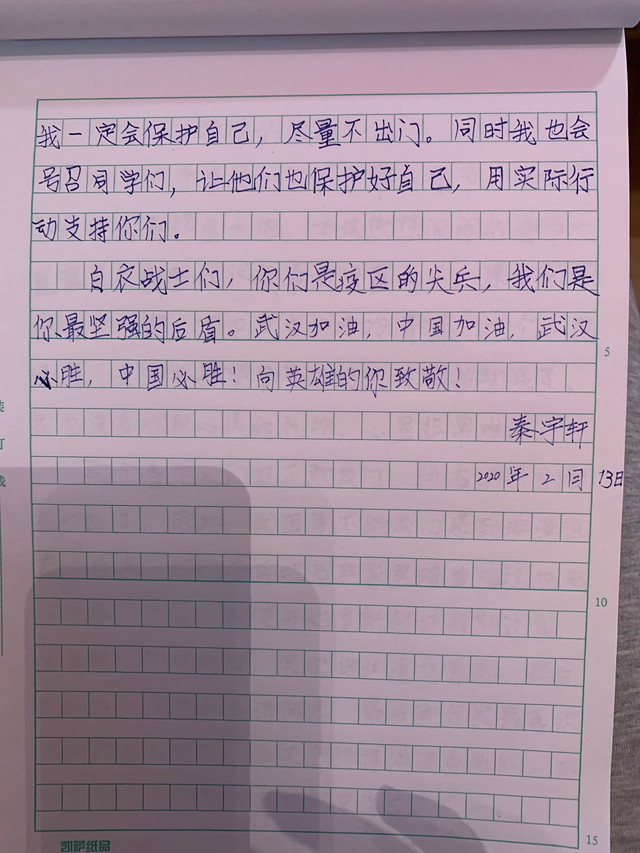 我一定会保护自己，尽量不出门。同时我也会
号召同学们，让他们也保护好自己，用实际行
动支持你们。
白衣战士们，你们是疫区的尖兵，我们是
你最坚强的后盾。武汉加油，中国加油，武汉
必胜，中国必胜！向英雄的你致敬！
秦宇轩
2020年2月13日
5
10
15
凯萨纸品
订
线